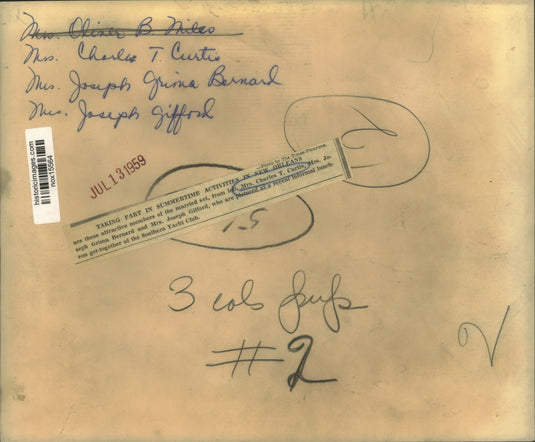 Mrs. Oliver B Miles
Mrs. Charles T. Curtis
Mrs. Joseph Grima Bernard
Mrs. Joseph Gifford
historicimages.com
nox15564
JUL 13 1959
—Photo by The Times-Picayune.
TAKING PART IN SUMMERTIME ACTIVITIES IN NEW ORLEANS
are these attractive members of the married set, from left, Mrs. Charles T. Curtis, Mrs. Jo-
seph Grima Bernard and Mrs. Joseph Gifford, who are pictured at a recent informal lunch-
eon get-together at the Southern Yacht Club.
15
3 cols
#2